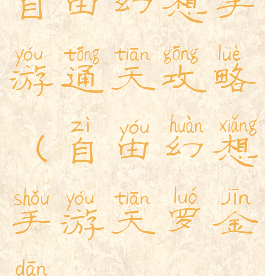 自由幻想手
yóu tōng tiān gōng lüè
游通天攻略
zì yóu huàn xiǎng
（自由幻想
shǒu yóu tiān luó jīn
手游天罗金
dān